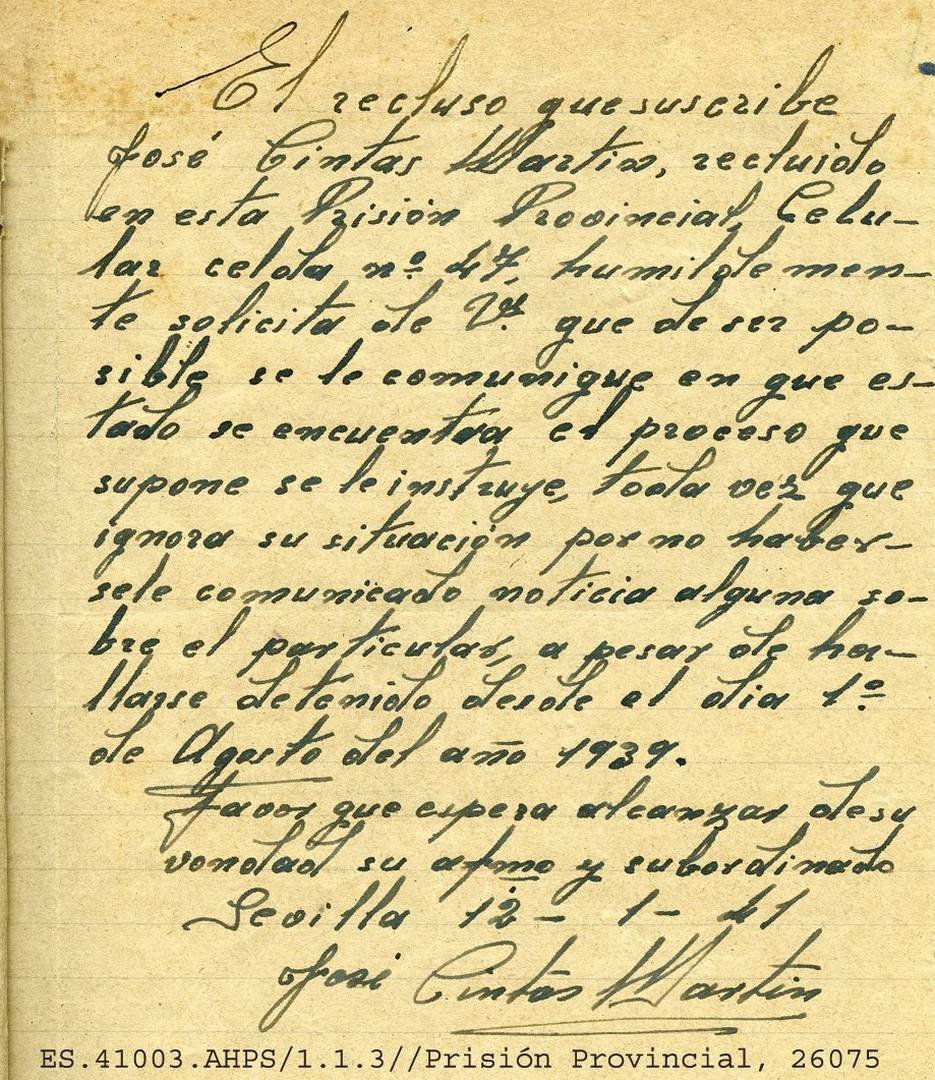 El recluso que suscribe
José Cintas Martin, recluido
en esta Prisión Provincial, Celu-
lar celda nº 47, humildemen-
te solicita de Vd. que de ser po-
sible se le comunique en que es-
tado se encuentra el proceso que
supone se le instruye, toda vez que
ignora su situación por no haber-
sele comunicado noticia alguna so-
bre el particular, a pesar de ha-
llarse detenido desde el dia 1º
de Agosto del año 1939.
Favor que espera alcanzar de su
vondad su afmo y subordinado
Sevilla 12 - 1 - 41
José Cintas Martin
ES.41003.AHPS/1.1.3//Prisión Provincial, 26075